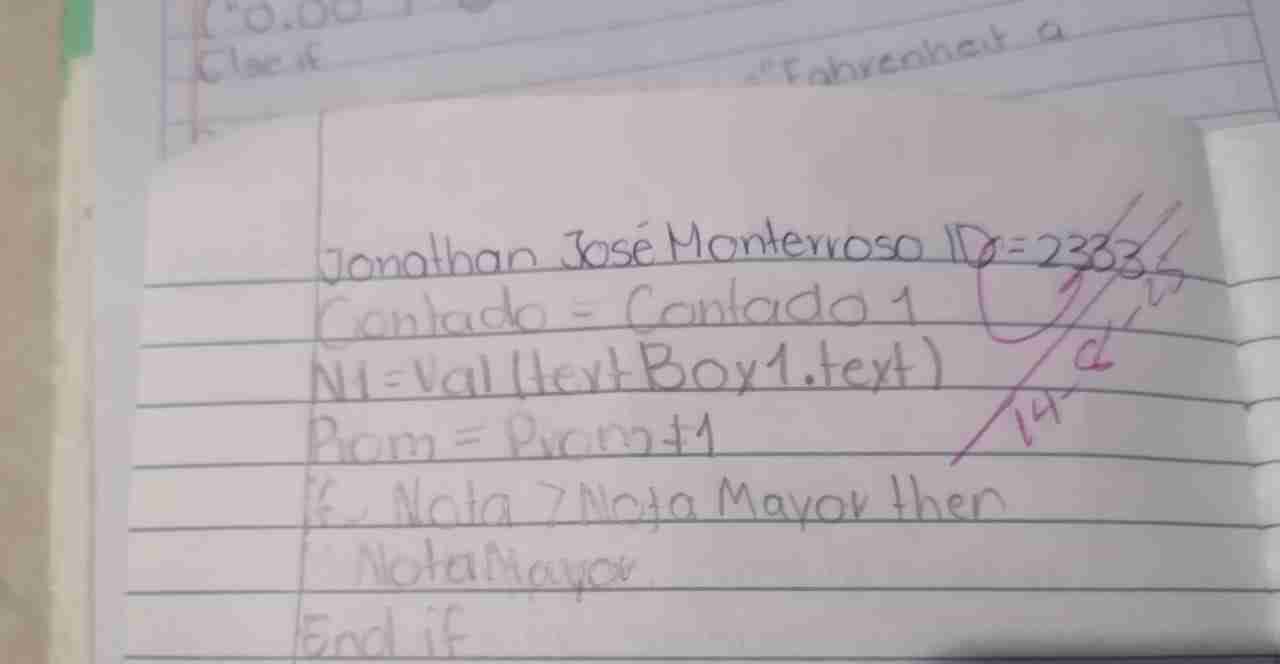 ("0.00
Else if
"Fahrenheit a
Jonathan José Monterroso ID=2333
Contado = Contado 1
N1=Val(textBox1.text)
Prom = Prom+1
If Nota > Nota Mayor then
NotaMayor
End if